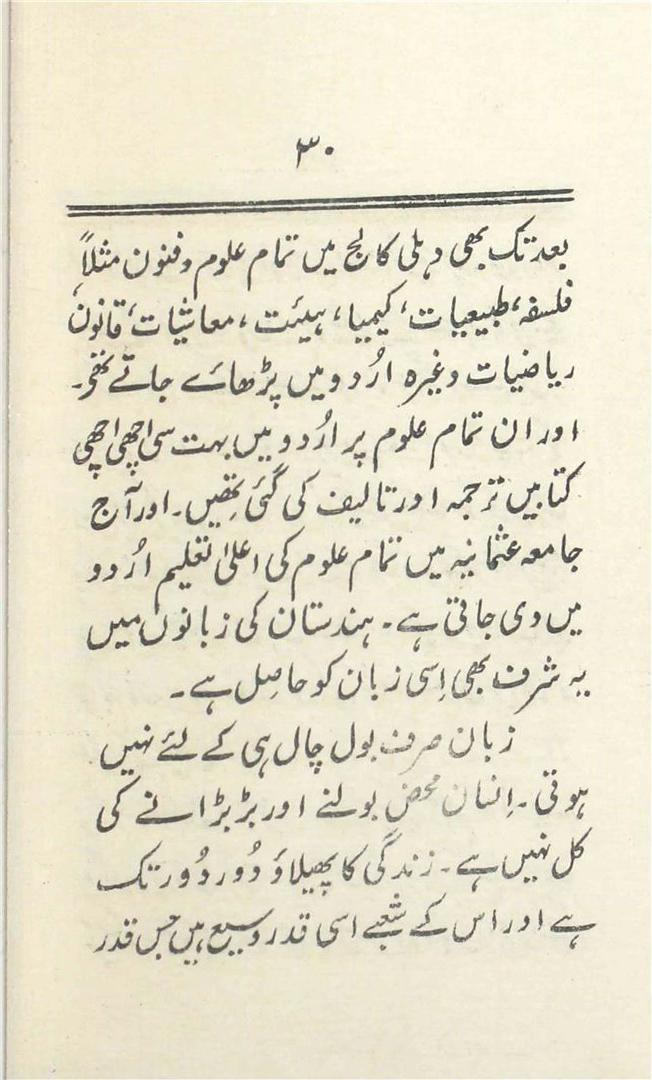 ۳۰
بعد تک بھی دہلی کالج میں تمام علوم و فنون مثلاً
فلسفہ، طبیعیات، کیمیا، ہیئت، معاشیات، قانون
ریاضیات وغیرہ اُردو میں پڑھائے جاتے تھے۔
اور ان تمام علوم پر اُردو میں بہت سی اچھی اچھی
کتابیں ترجمہ اور تالیف کی گئی تھیں۔ اور آج
جامعہ عثمانیہ میں تمام علوم کی اعلیٰ تعلیم اُردو
میں دی جاتی ہے۔ ہندستان کی زبانوں میں
یہ شرف بھی اِسی زبان کو حاصِل ہے۔
زبان صرف بول چال ہی کے لئے نہیں
ہوتی۔ اِنسان محض بولنے اور بڑبڑانے کی
کل نہیں ہے۔ زندگی کا پھیلاؤ دُور دُور تک
ہے اور اس کے شعبے اسی قدر وسیع ہیں جس قدر